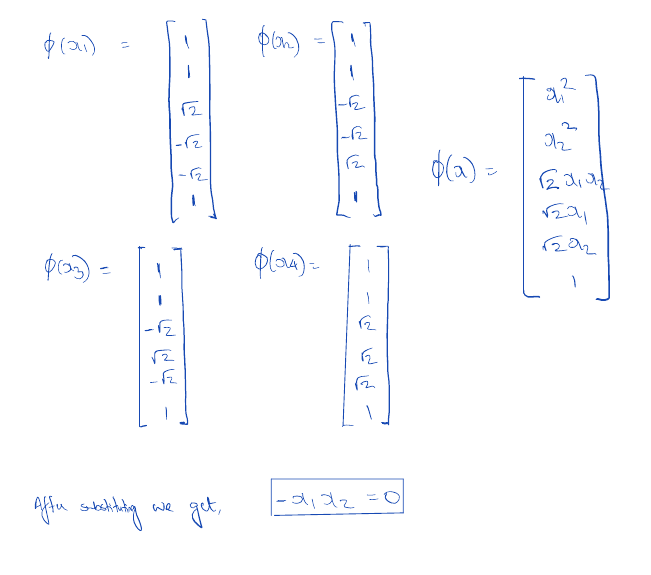 ϕ(x₁) = [1 1 √2 -√2 -√2 1]
ϕ(x₂) = [1 1 -√2 -√2 √2 1]
ϕ(x) = [x₁² x₂² √2 x₁x₂ √2x₁ √2x₂ 1]
ϕ(x₃) = [1 1 -√2 √2 -√2 1]
ϕ(x₄) = [1 1 √2 √2 √2 1]
After substituting we get, -x₁x₂ = 0